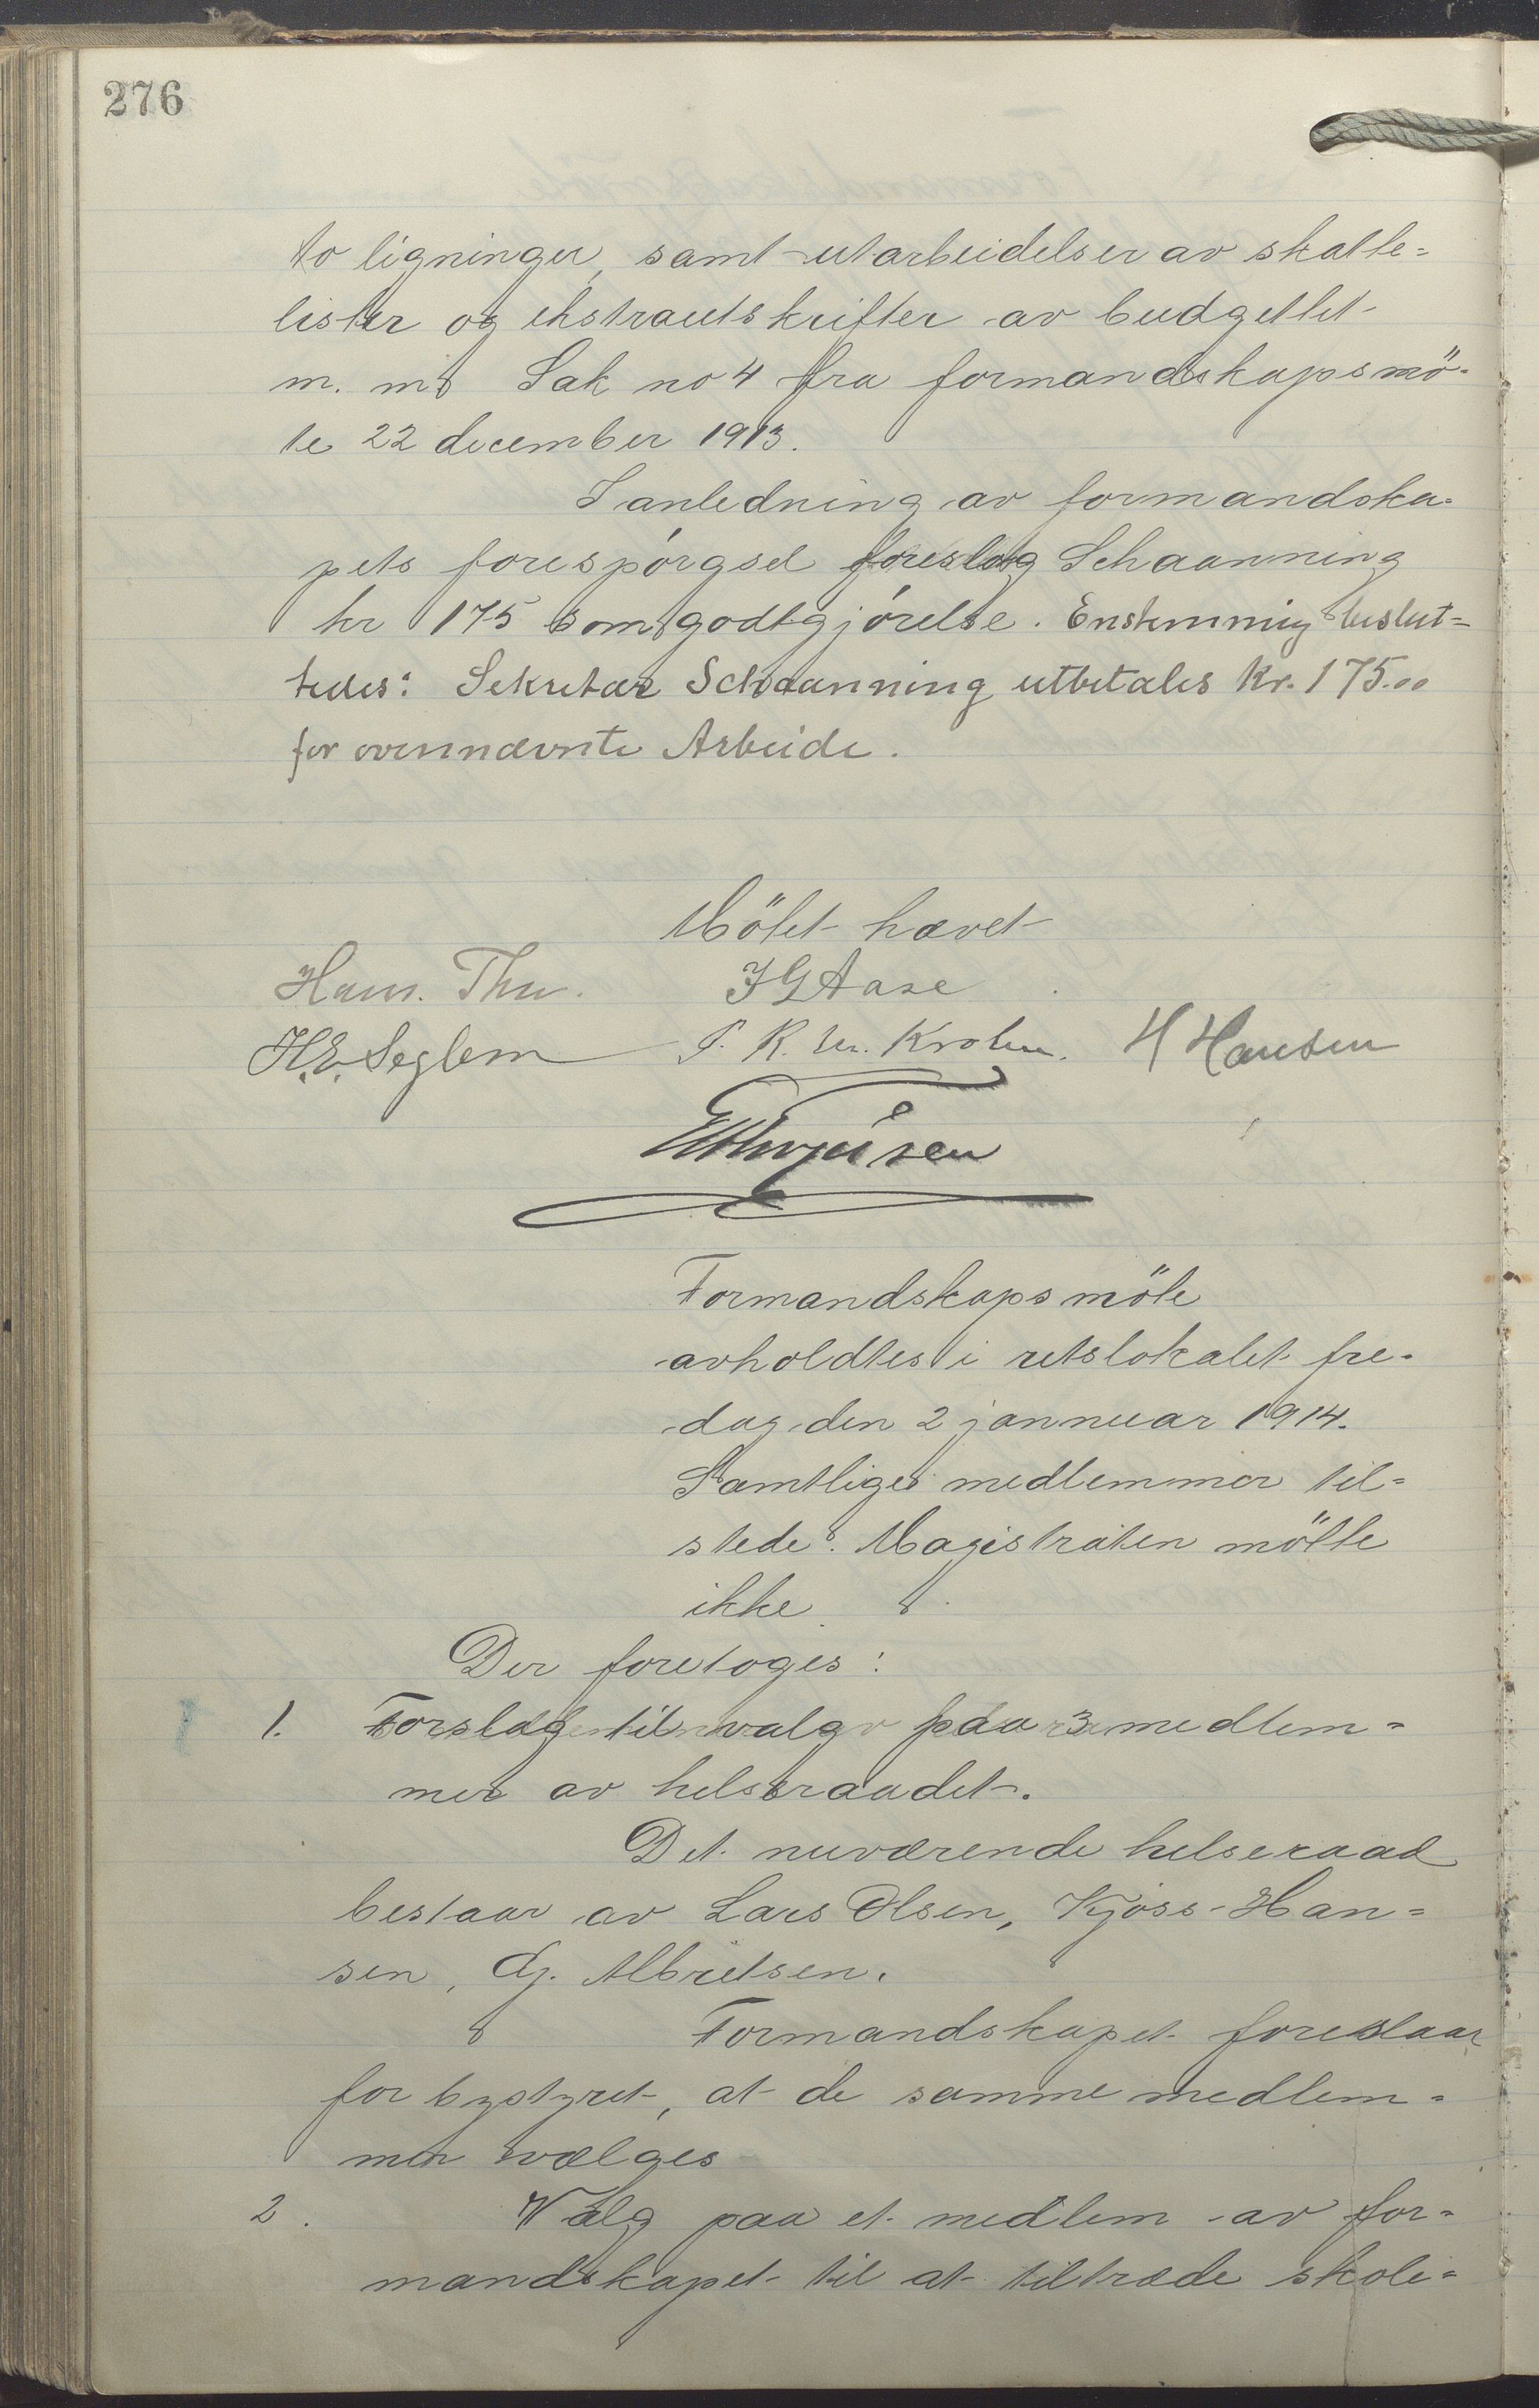 276
to ligninger, samt utarbeidelser av skatte=
lister og ekstrautskrifter av budgettet
m. m. Sak no 4 fra formandskapsmö-
te 22 december 1913.
I anledning av formandska-
pets forespørgsel foreslog Schaanning
kr 175 som godtgjørelse. Enstemmig beslut=
tedes: Sekretær Schaanning utbetales Kr. 175.00
for ovennævnte Arbeide.
Mötet hævet
Hans. Thu. J G Aase
H.E. Seglem P. R. Krohn. H Hansen
Formandskapsmöte
avholdtes i retslokalet fre-
dag den 2 jannuar 1914.
Samtlige medlemmer til=
stede. Magistraten mötte
ikke.
Der foretoges:
1. Forslag til valg paa 3 medlem=
mer av helseraadet.
Det nuværende helseraad
bestaar av Lars Olsen, Kjöss-Han=
sen, G. Albretsen.
Formandskapet foreslaar
for bystyret, at de samme medlem=
mer vælges
2. Valg paa et medlem av for=
mandskapet til at tiltræde skole=